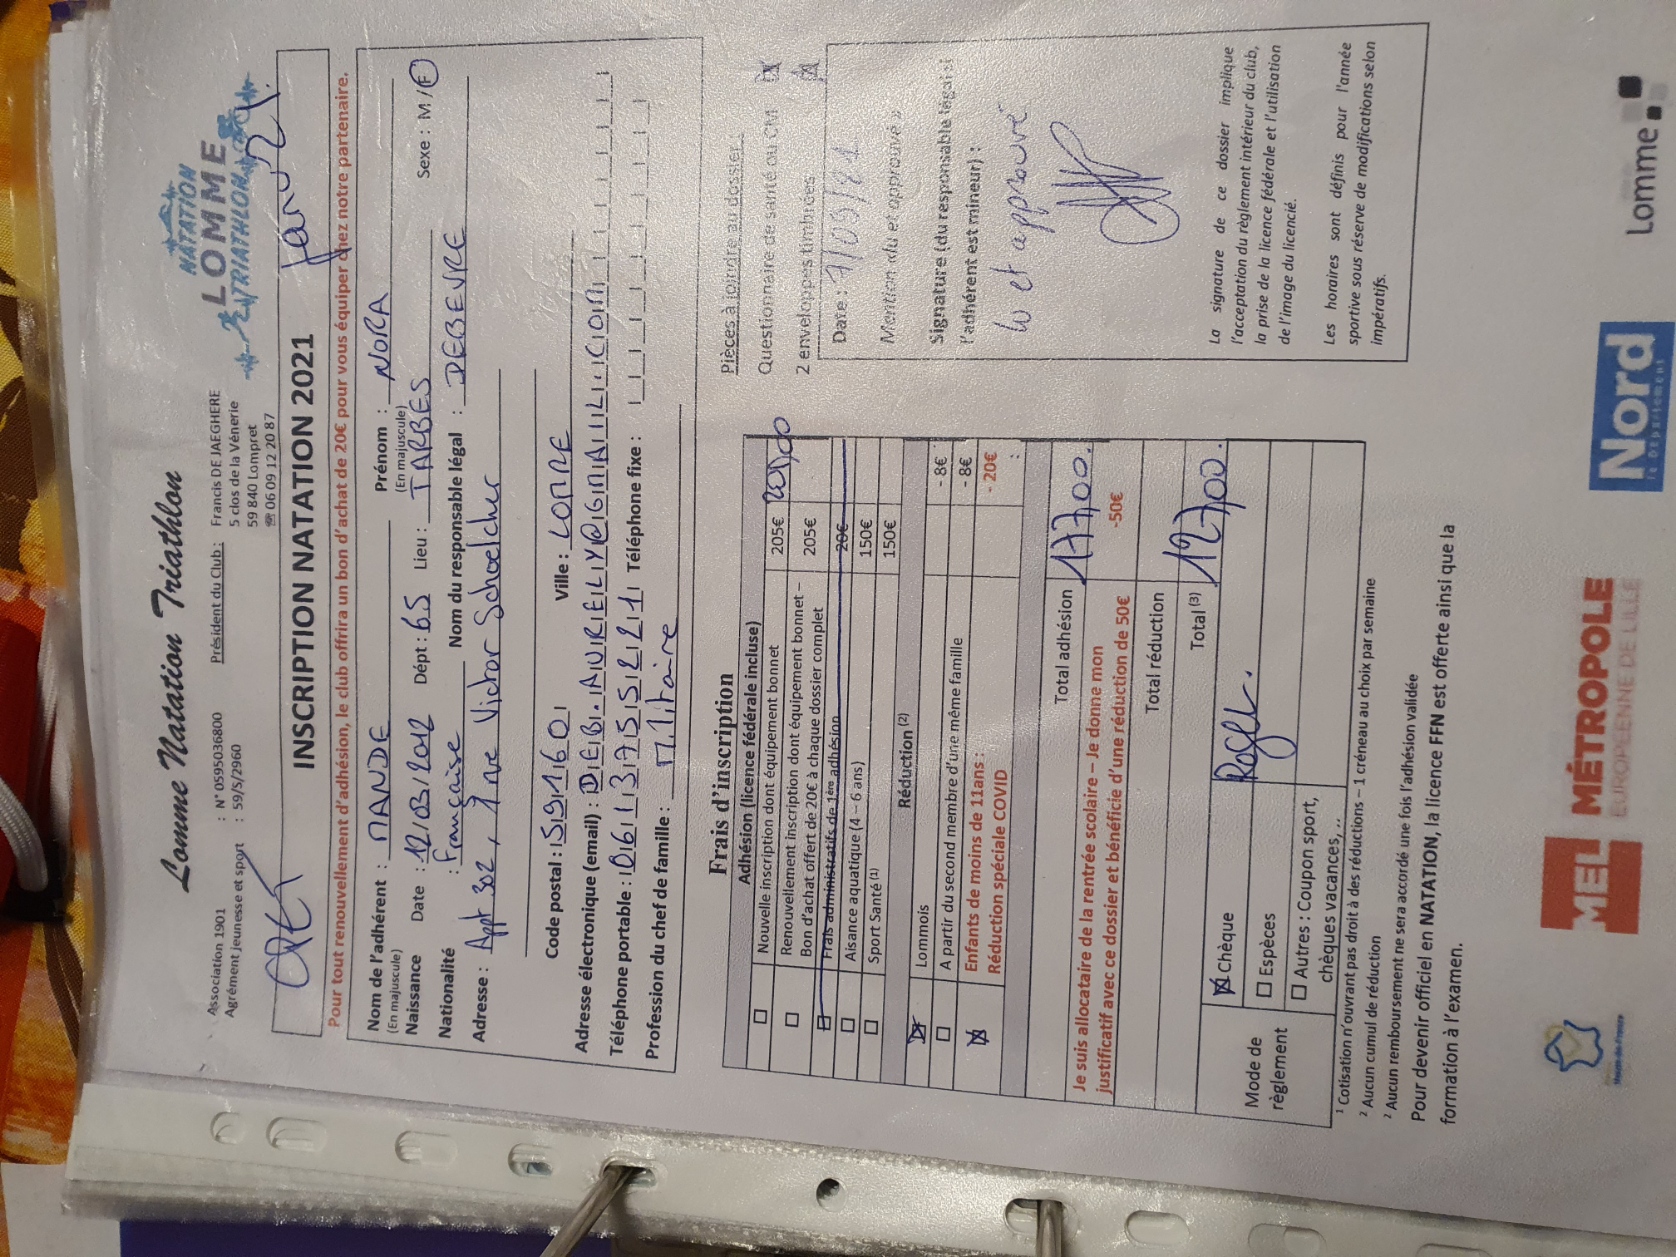 Lomme Natation Triathlon
NATATION
LOMME
TRIATHLON
Association 1901 : N° 0595036800 Président du Club : Francis DE JAEGHERE
Agrément jeunesse et sport : 59/S/2960 5 clos de la Vénerie
59 840 Lompret
☎ 06 09 12 20 87
INSCRIPTION NATATION 2021
Pour tout renouvellement d'adhésion, le club offrira un bon d'achat de 20€ pour vous équiper chez notre partenaire.
Nom de l'adhérent : MANDE Prénom : NORA
(En majuscule) (En majuscule)
Naissance Date : 12/03/2012 Dépt : 65 Lieu : TARBES Sexe : M / F
Nationalité : Française Nom du responsable légal : DEBEVRE
Adresse : Appt 302, 1 rue Victor Schoelcher
Code postal : 59160 Ville : LOMME
Adresse électronique (email) : DEB.AURELY@GMAIL.COM
Téléphone portable : 0613755221 Téléphone fixe :
Profession du chef de famille : Militaire
Frais d'inscription
Adhésion (licence fédérale incluse)
☐ Nouvelle inscription dont équipement bonnet 205€
☐ Renouvellement inscription dont équipement bonnet – 205€
Bon d'achat offert de 20€ à chaque dossier complet
☐ Frais administratifs de 1ère adhésion 20€
☐ Aisance aquatique (4 – 6 ans) 150€
☐ Sport Santé (1) 150€
Réduction (2)
☒ Lommois - 8€
☐ A partir du second membre d'une même famille - 8€
☒ Enfants de moins de 11ans : - 20€
Réduction spéciale COVID :
Total adhésion 177,00.
Je suis allocataire de la rentrée scolaire – Je donne mon -50€
justificatif avec ce dossier et bénéficie d'une réduction de 50€
Total réduction
Total (3) 127,00.
Mode de règlement
☒ Chèque Roger.
☐ Espèces
☐ Autres : Coupon sport,
chèques vacances, ..
Pièces à joindre au dossier :
Questionnaire de santé ou CM ☒
2 enveloppes timbrées ☒
Date : 7/09/21
Mention «lu et approuvé »
Signature (du responsable légal si
l'adhérent est mineur) :
lu et approuvé
La signature de ce dossier implique
l'acceptation du règlement intérieur du club,
la prise de la licence fédérale et l'utilisation
de l'image du licencié.
Les horaires sont définis pour l'année
sportive sous réserve de modifications selon
impératifs.
1 Cotisation n'ouvrant pas droit à des réductions – 1 créneau au choix par semaine
2 Aucun cumul de réduction
2 Aucun remboursement ne sera accordé une fois l'adhésion validée
Pour devenir officiel en NATATION, la licence FFN est offerte ainsi que la
formation à l'examen.
MEL MÉTROPOLE
EUROPÉENNE DE LILLE
Nord
le Département
Lomme